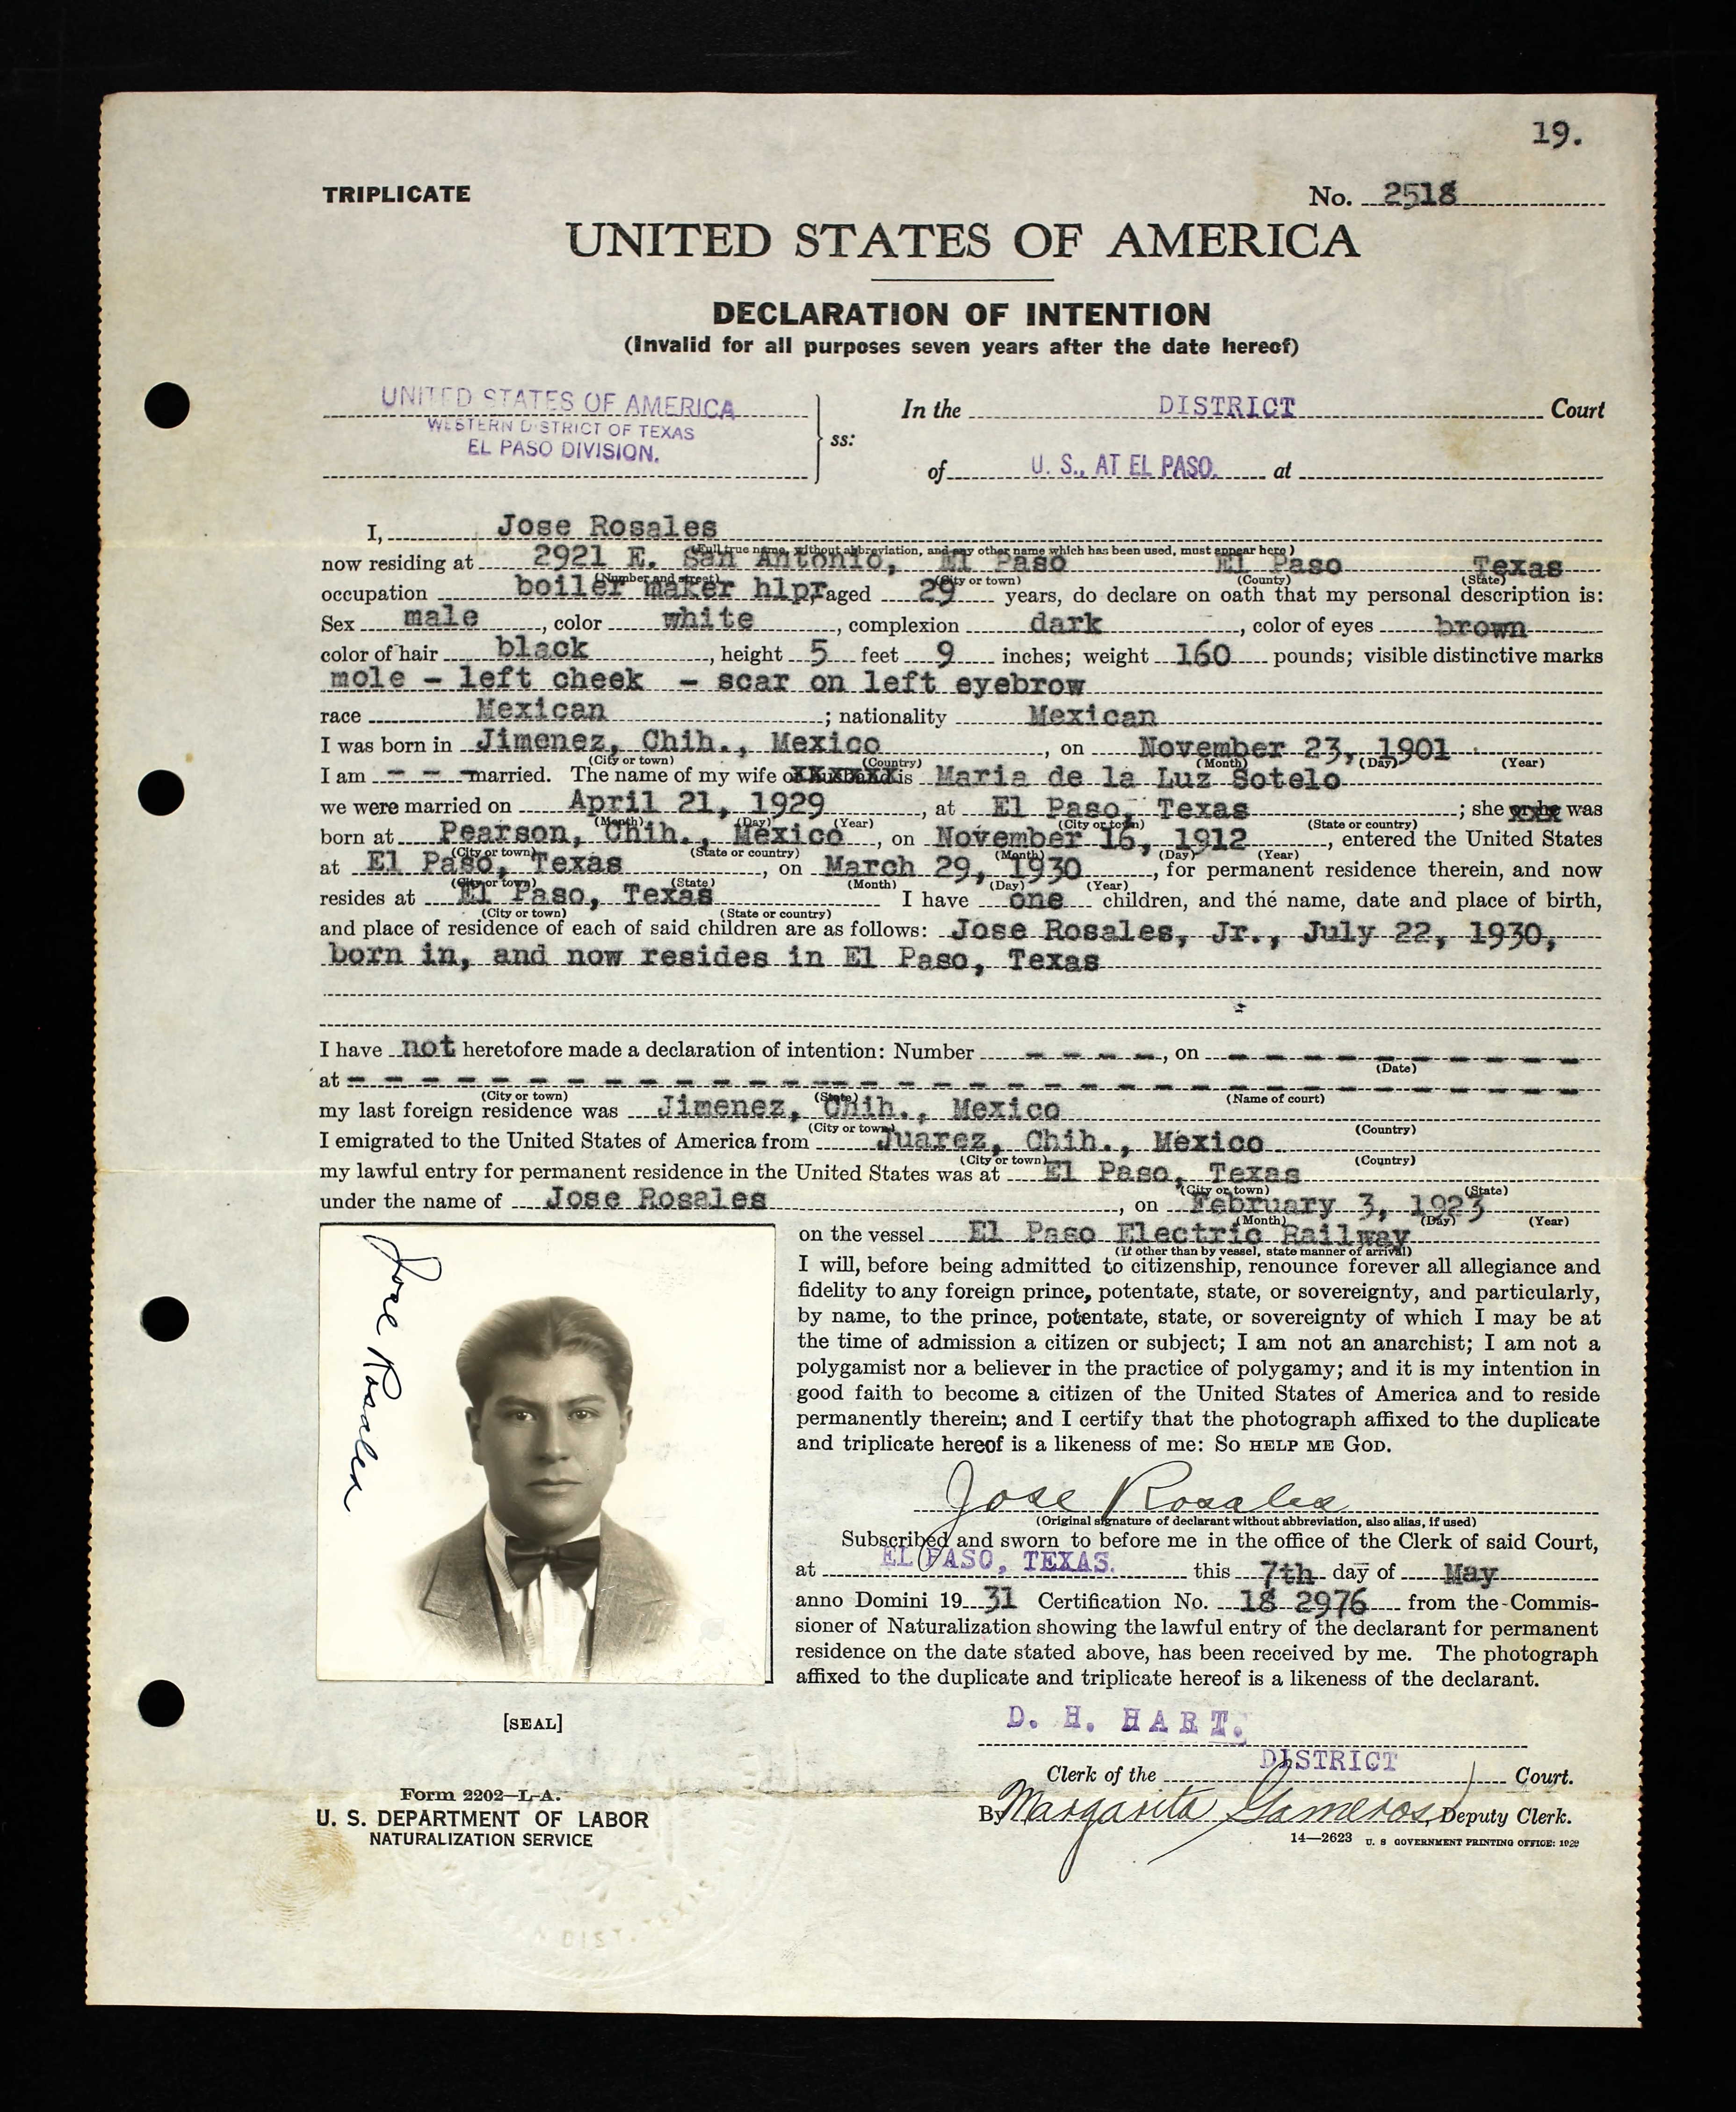 19.
TRIPLICATE
No. 2518
UNITED STATES OF AMERICA
DECLARATION OF INTENTION
(Invalid for all purposes seven years after the date hereof)
UNITED STATES OF AMERICA
WESTERN DISTRICT OF TEXAS
EL PASO DIVISION.
ss:
In the DISTRICT Court
of U. S., AT EL PASO. at
I, Jose Rosales
(Full true name, without abbreviation, and any other name which has been used, must appear here)
now residing at 2921 E. San Antonio, El Paso El Paso Texas
(Number and street) (City or town) (County) (State)
occupation boiler maker hlpr, aged 29 years, do declare on oath that my personal description is:
Sex male, color white, complexion dark, color of eyes brown
color of hair black, height 5 feet 9 inches; weight 160 pounds; visible distinctive marks
mole - left cheek - scar on left eyebrow
race Mexican; nationality Mexican
I was born in Jimenez, Chih., Mexico, on November 23, 1901
(City or town) (Country) (Month) (Day) (Year)
I am - - - married. The name of my wife or husband is Maria de la Luz Sotelo
we were married on April 21, 1929, at El Paso, Texas; she or he was
(Month) (Day) (Year) (City or town) (State or country)
born at Pearson, Chih., Mexico, on November 16, 1912, entered the United States
(City or town) (State or country) (Month) (Day) (Year)
at El Paso, Texas, on March 29, 1930, for permanent residence therein, and now
(City or town) (State) (Month) (Day) (Year)
resides at El Paso, Texas I have one children, and the name, date and place of birth,
(City or town) (State or country)
and place of residence of each of said children are as follows: Jose Rosales, Jr., July 22, 1930,
born in, and now resides in El Paso, Texas
I have not heretofore made a declaration of intention: Number - - - -, on - - - - - - - - - -
(Date)
at - - - - - - - - - - - - - - - - - - - - - - - - - - - - - - - - - -
(City or town) (State) (Name of court)
my last foreign residence was Jimenez, Chih., Mexico
(City or town) (Country)
I emigrated to the United States of America from Juarez, Chih., Mexico
(City or town) (Country)
my lawful entry for permanent residence in the United States was at El Paso, Texas
(City or town) (State)
under the name of Jose Rosales, on February 3, 1923
(Month) (Day) (Year)
on the vessel El Paso Electric Railway
(If other than by vessel, state manner of arrival)
Jose Rosales
I will, before being admitted to citizenship, renounce forever all allegiance and
fidelity to any foreign prince, potentate, state, or sovereignty, and particularly,
by name, to the prince, potentate, state, or sovereignty of which I may be at
the time of admission a citizen or subject; I am not an anarchist; I am not a
polygamist nor a believer in the practice of polygamy; and it is my intention in
good faith to become a citizen of the United States of America and to reside
permanently therein; and I certify that the photograph affixed to the duplicate
and triplicate hereof is a likeness of me: SO HELP ME GOD.
Jose Rosales
(Original signature of declarant without abbreviation, also alias, if used)
Subscribed and sworn to before me in the office of the Clerk of said Court,
at EL PASO, TEXAS. this 7th day of May
anno Domini 19 31 Certification No. 18 2976 from the Commis-
sioner of Naturalization showing the lawful entry of the declarant for permanent
residence on the date stated above, has been received by me. The photograph
affixed to the duplicate and triplicate hereof is a likeness of the declarant.
[SEAL]
D. H. HART.
Clerk of the DISTRICT Court.
By Margarita Gameros, Deputy Clerk.
Form 2202—L-A.
U. S. DEPARTMENT OF LABOR
NATURALIZATION SERVICE
14—2623 U. S GOVERNMENT PRINTING OFFICE: 1929